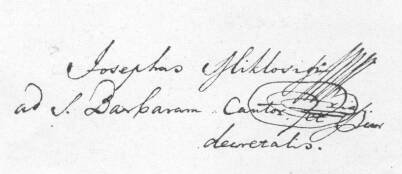 Josephus Mikloviſi
ad S. Barbaram Cantor et
decretalis.